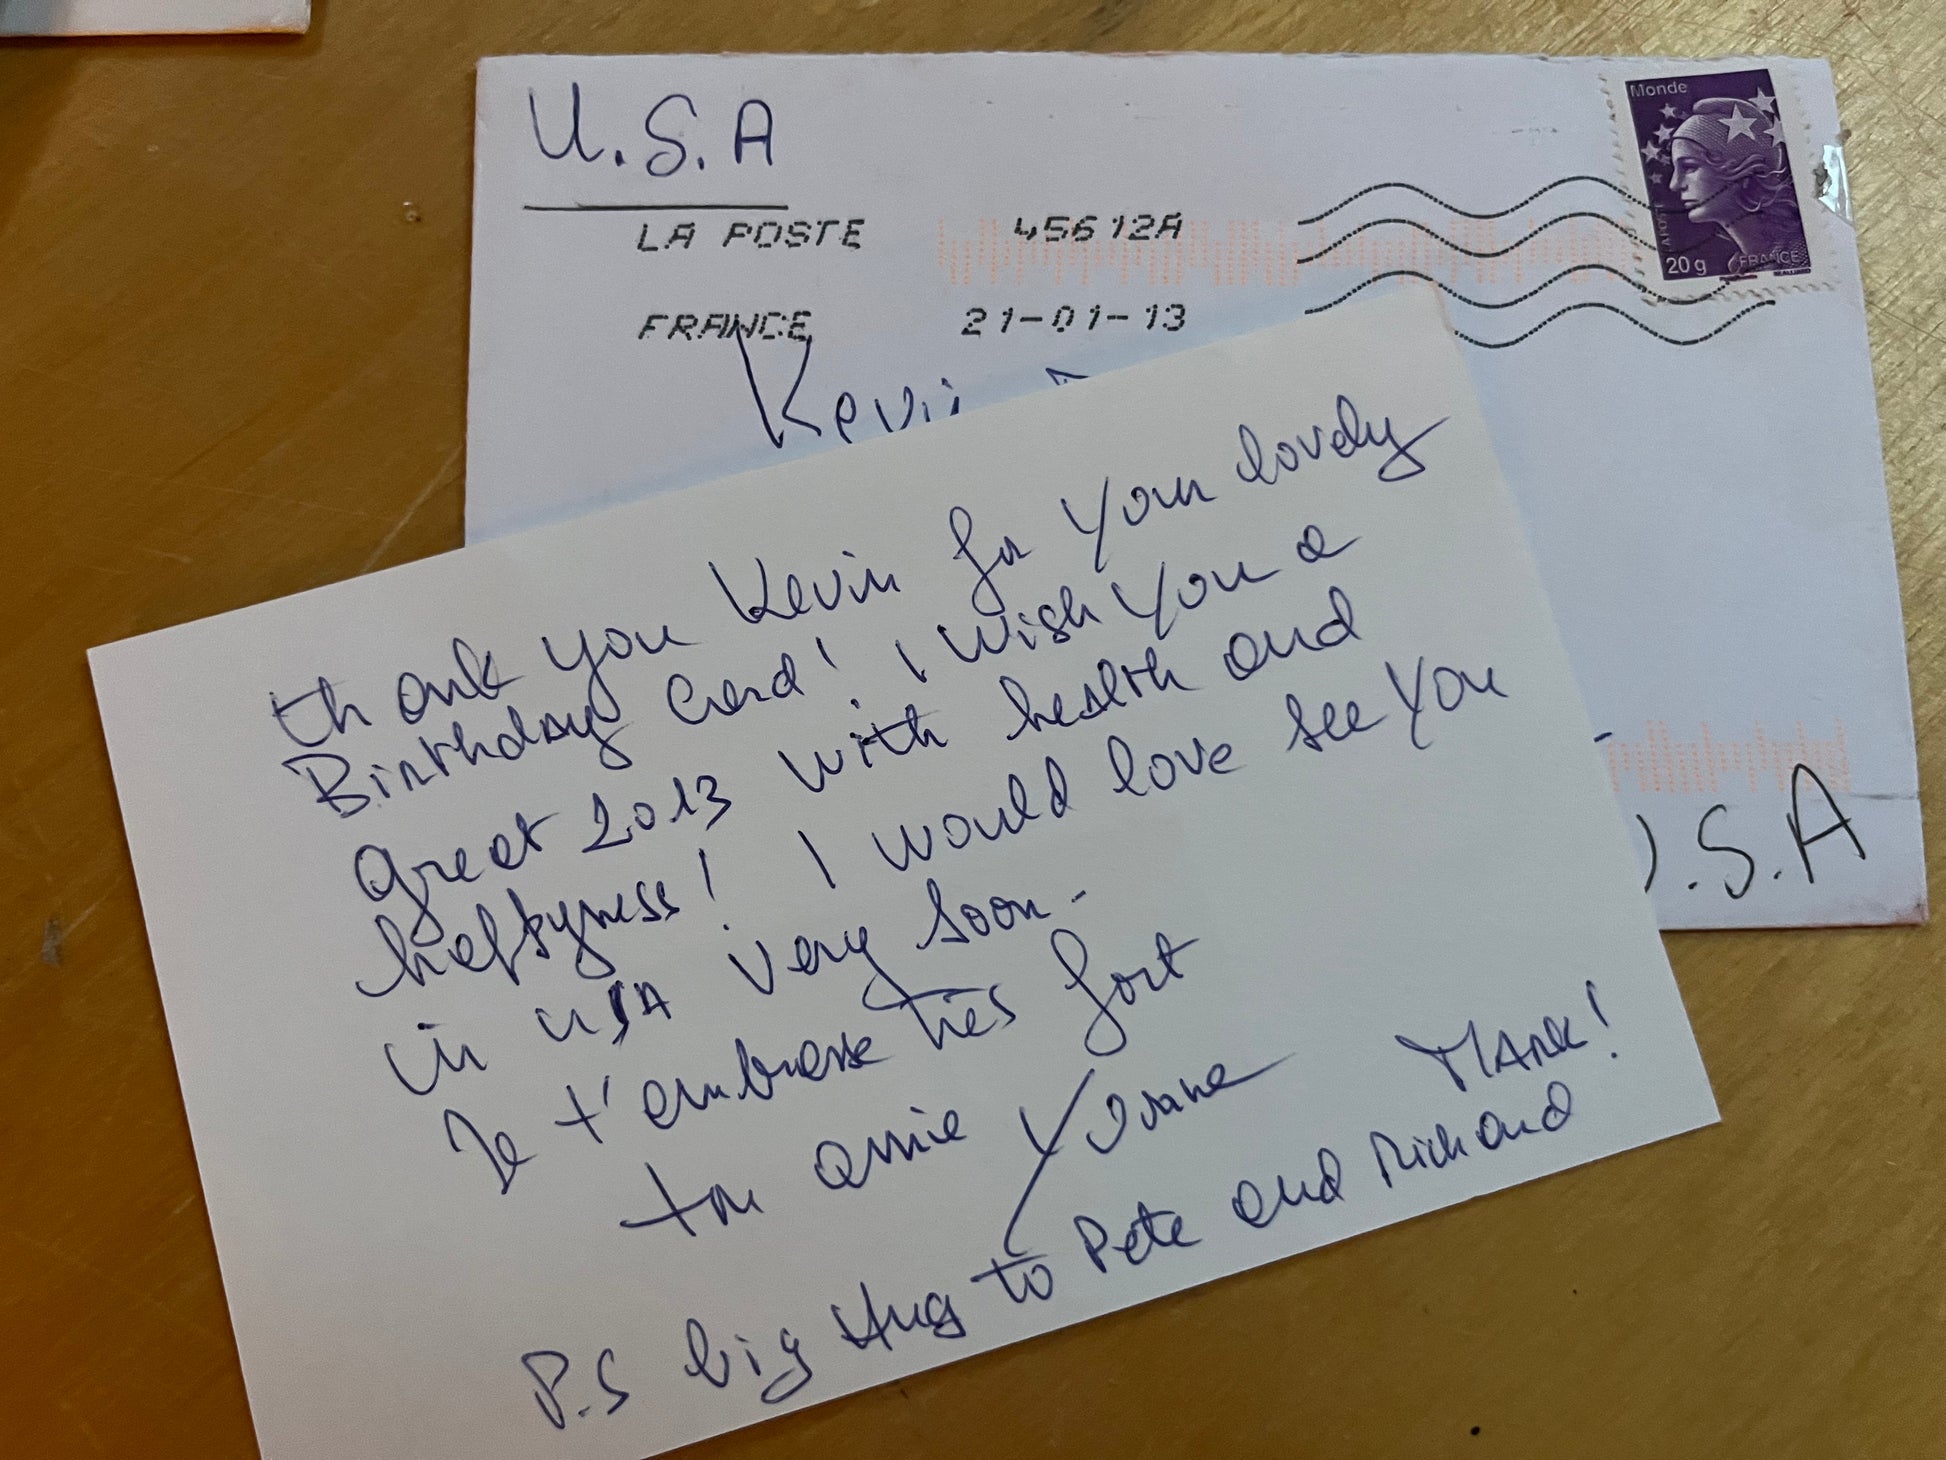 U.S.A
Monde
LA POSTE 45612A
20g FRANCE
FRANCE 21-01-13
Kevin
thank you Kevin for your lovely
Birthday Card! I wish you a
great 2013 with health and
happyness! I would love see you
in USA very soon-
Je t'embrasse très fort
ton amie Yvonne
P.S big Hug to Pete and Richard
Mark!
U.S.A